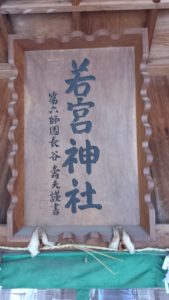 若宮神社
第六師團長谷壽夫謹書